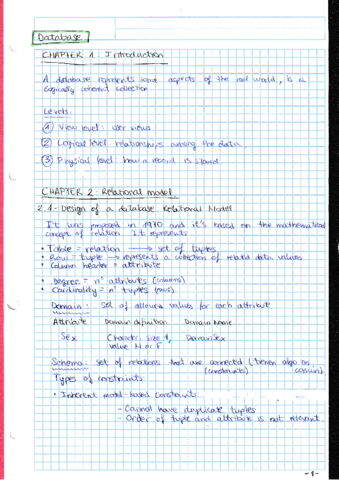 Database
CHAPTER 1: Introduction
A database represents some aspects of the real world, is a
logically coherent collection
Levels:
① View level: user views
② Logical level: relationships among the data
③ Physical level: how a record is stored
CHAPTER 2: Relational model
2.1- Design of a database Relational Model
It was proposed in 1970 and it's based on the mathematical
concept of relation. It represents
• Table = relation → set of tuples
• Row = tuple → represents a collection of related data values
• Column header = attribute
• Degree = nº attributes (columns)
• Cardinality = nº tuples (rows)
Domain: Set of allowed values for each attribut
Attribute Domain definition Domain Name
Sex Character size 1, DomainSex
value M or F
Schema: set of relations that are connected (tienen algo en
(constraints) común)
Types of constraints
• Inherent model-based constraint:
- Cannot have duplicate tuples
- Order of tuple and attribute is not relevant
-1-